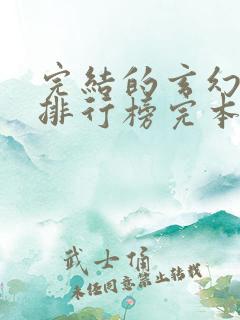 完结的玄幻
排行榜完本
武士俑
未经同意禁止转载